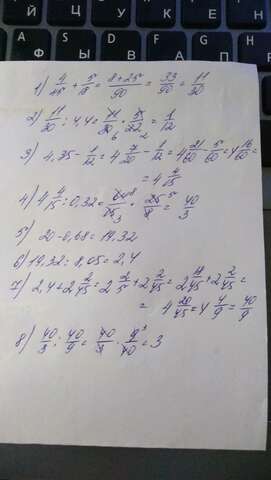 1) 4/45 + 5/18 = (8+25)/90 = 33/90 = 11/30
2) 11/30 : 4,4 = 11/30 · 5/22 = 1/12
3) 4,35 - 1/12 = 4 7/20 - 1/12 = 4 21/60 - 5/60 = 4 16/60 =
= 4 4/15
4) 4 4/15 : 0,32 = 64/15 · 25/8 = 40/3
5) 20 - 0,68 = 19,32
6) 19,32 : 8,05 = 2,4
7) 2,4 + 2 2/45 = 2 2/5 + 2 2/45 = 2 18/45 + 2 2/45 =
= 4 20/45 = 4 4/9 = 40/9
8) 40/3 : 40/9 = 40/3 · 9/40 = 3